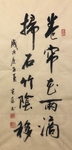 卷帘花雨滴
掃石竹陰移